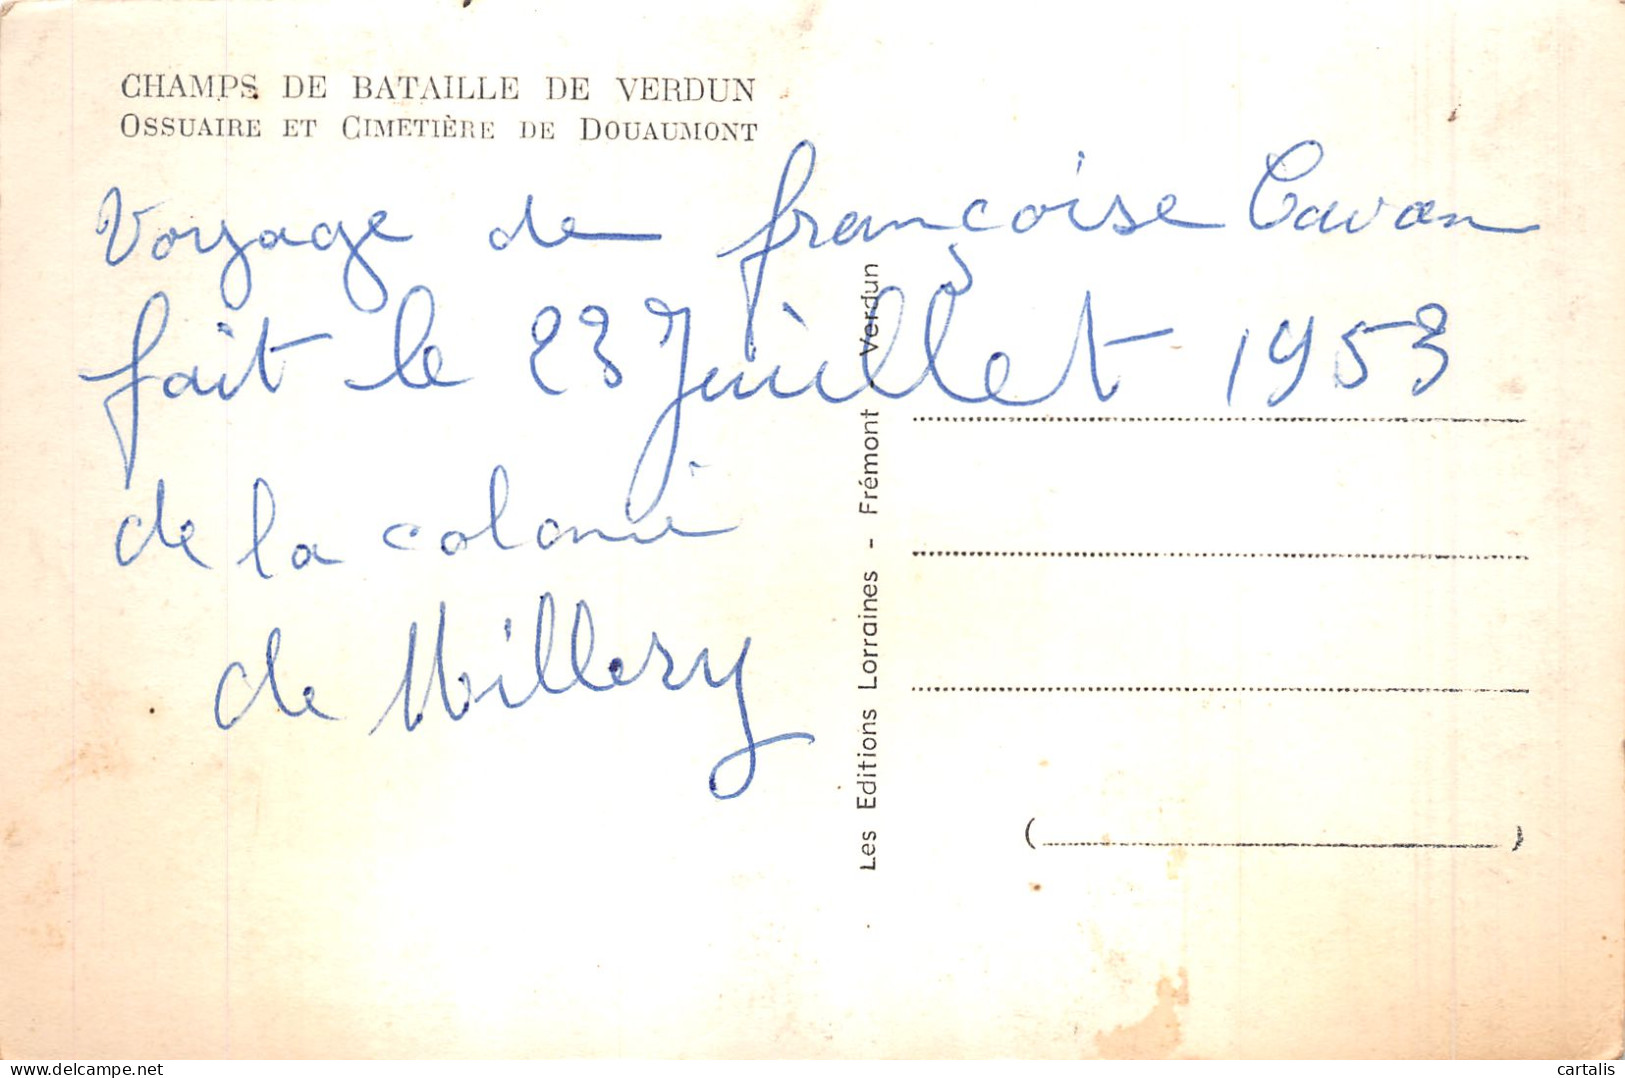 CHAMPS DE BATAILLE DE VERDUN
OSSUAIRE ET CIMETIÈRE DE DOUAUMONT
Voyage de françoise Cavan
fait le 23 Juillet 1953
de la colonie
de Millery
Les Editions Lorraines - Frémont - Verdun
(                    )
www.delcampe.net
cartalis